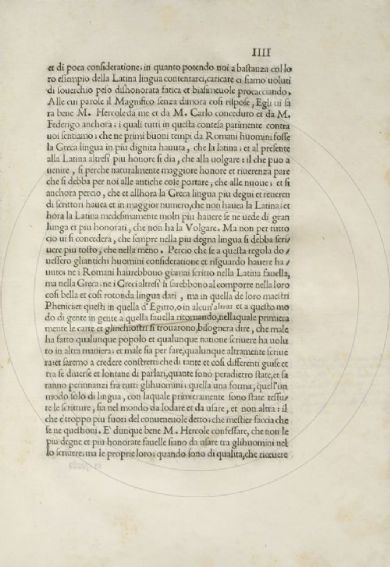 IIII
et di poca consideratione: in quanto potendo noi a bastanza col lo
ro essempio della Latina lingua contentarci, caricare ci siamo uoluti
di souerchio peso dishonorata fatica et biasimeuole procacciando.
Alle cui parole il Magnifico senza dimora cosi rispose, Egli ui sa
ra bene M. Hercole da me et da M. Carlo conceduto et da M.
Federigo anchora: i quali tutti in questa contesa parimente contra
uoi sentiamo: che ne primi buoni tempi da Romani huomini fosse
la Greca lingua in piu dignita hauuta, che la latina: et al presente
alla Latina altresi piu honore si dia, che alla uolgare: il che puo a
uenire, si perche naturalmente maggiore honore et riuerenza pare
che si debba per noi alle antiche cose portare, che alle nuoue: et si
anchora percio, che et allhora la Greca lingua piu degni et reueren
di scrittori hauea et in maggior numero, che non hauea la Latina: et
hora la Latina medesimamente molti piu hauere se ne uede di gran
lunga et piu honorati, che non ha la Volgare. Ma non per tutto
cio ui si concedera, che sempre nella piu degna lingua si debba scri/
uere piu tosto, che nella meno. Percio che se a questa regola do/
uessero gliantichi huomini consideratione et risguardo hauere ha/
uuto: ne i Romani haurebbono giamai scritto nella Latina fauella,
ma nella Greca: ne i Greci altresi si sarebbono al comporre nella loro
cosi bella et cosi rotonda lingua dati, ma in quella de loro maestri
Phenici: et questi in quella d'Egitto, o in alcun'altra: et a questo mo
do di gente in gente a quella fauella ritornando, nella quale primiera
mente le carte et glinchiostri si trouarono, bisognera dire, che male
ha fatto qualunque popolo et qualunque natione scriuere ha uolu
to in altra maniera: et male sia per fare, qualunque altramente scriue
ra: et saremo a credere constretti che di tante et cosi differenti guise et
tra se diuerse et lontane di parlari, quante sono per adietro state, et sa
ranno per innanzi fra tutti glihuomini: quella una forma, quell'un
modo solo di lingua, con laquale primieramente sono state tessu/
te le scritture, sia nel mondo da lodare et da usare, et non altra: il
che e troppo piu fuori del conueneuole detto: che mestier faccia che
se ne questioni. E' dunque bene M. Hercole confessare, che non le
piu degne et piu honorate fauelle siano da usare tra glihuomini nel
lo scriuere: ma le proprie loro: quando sono di qualita, che riceuere